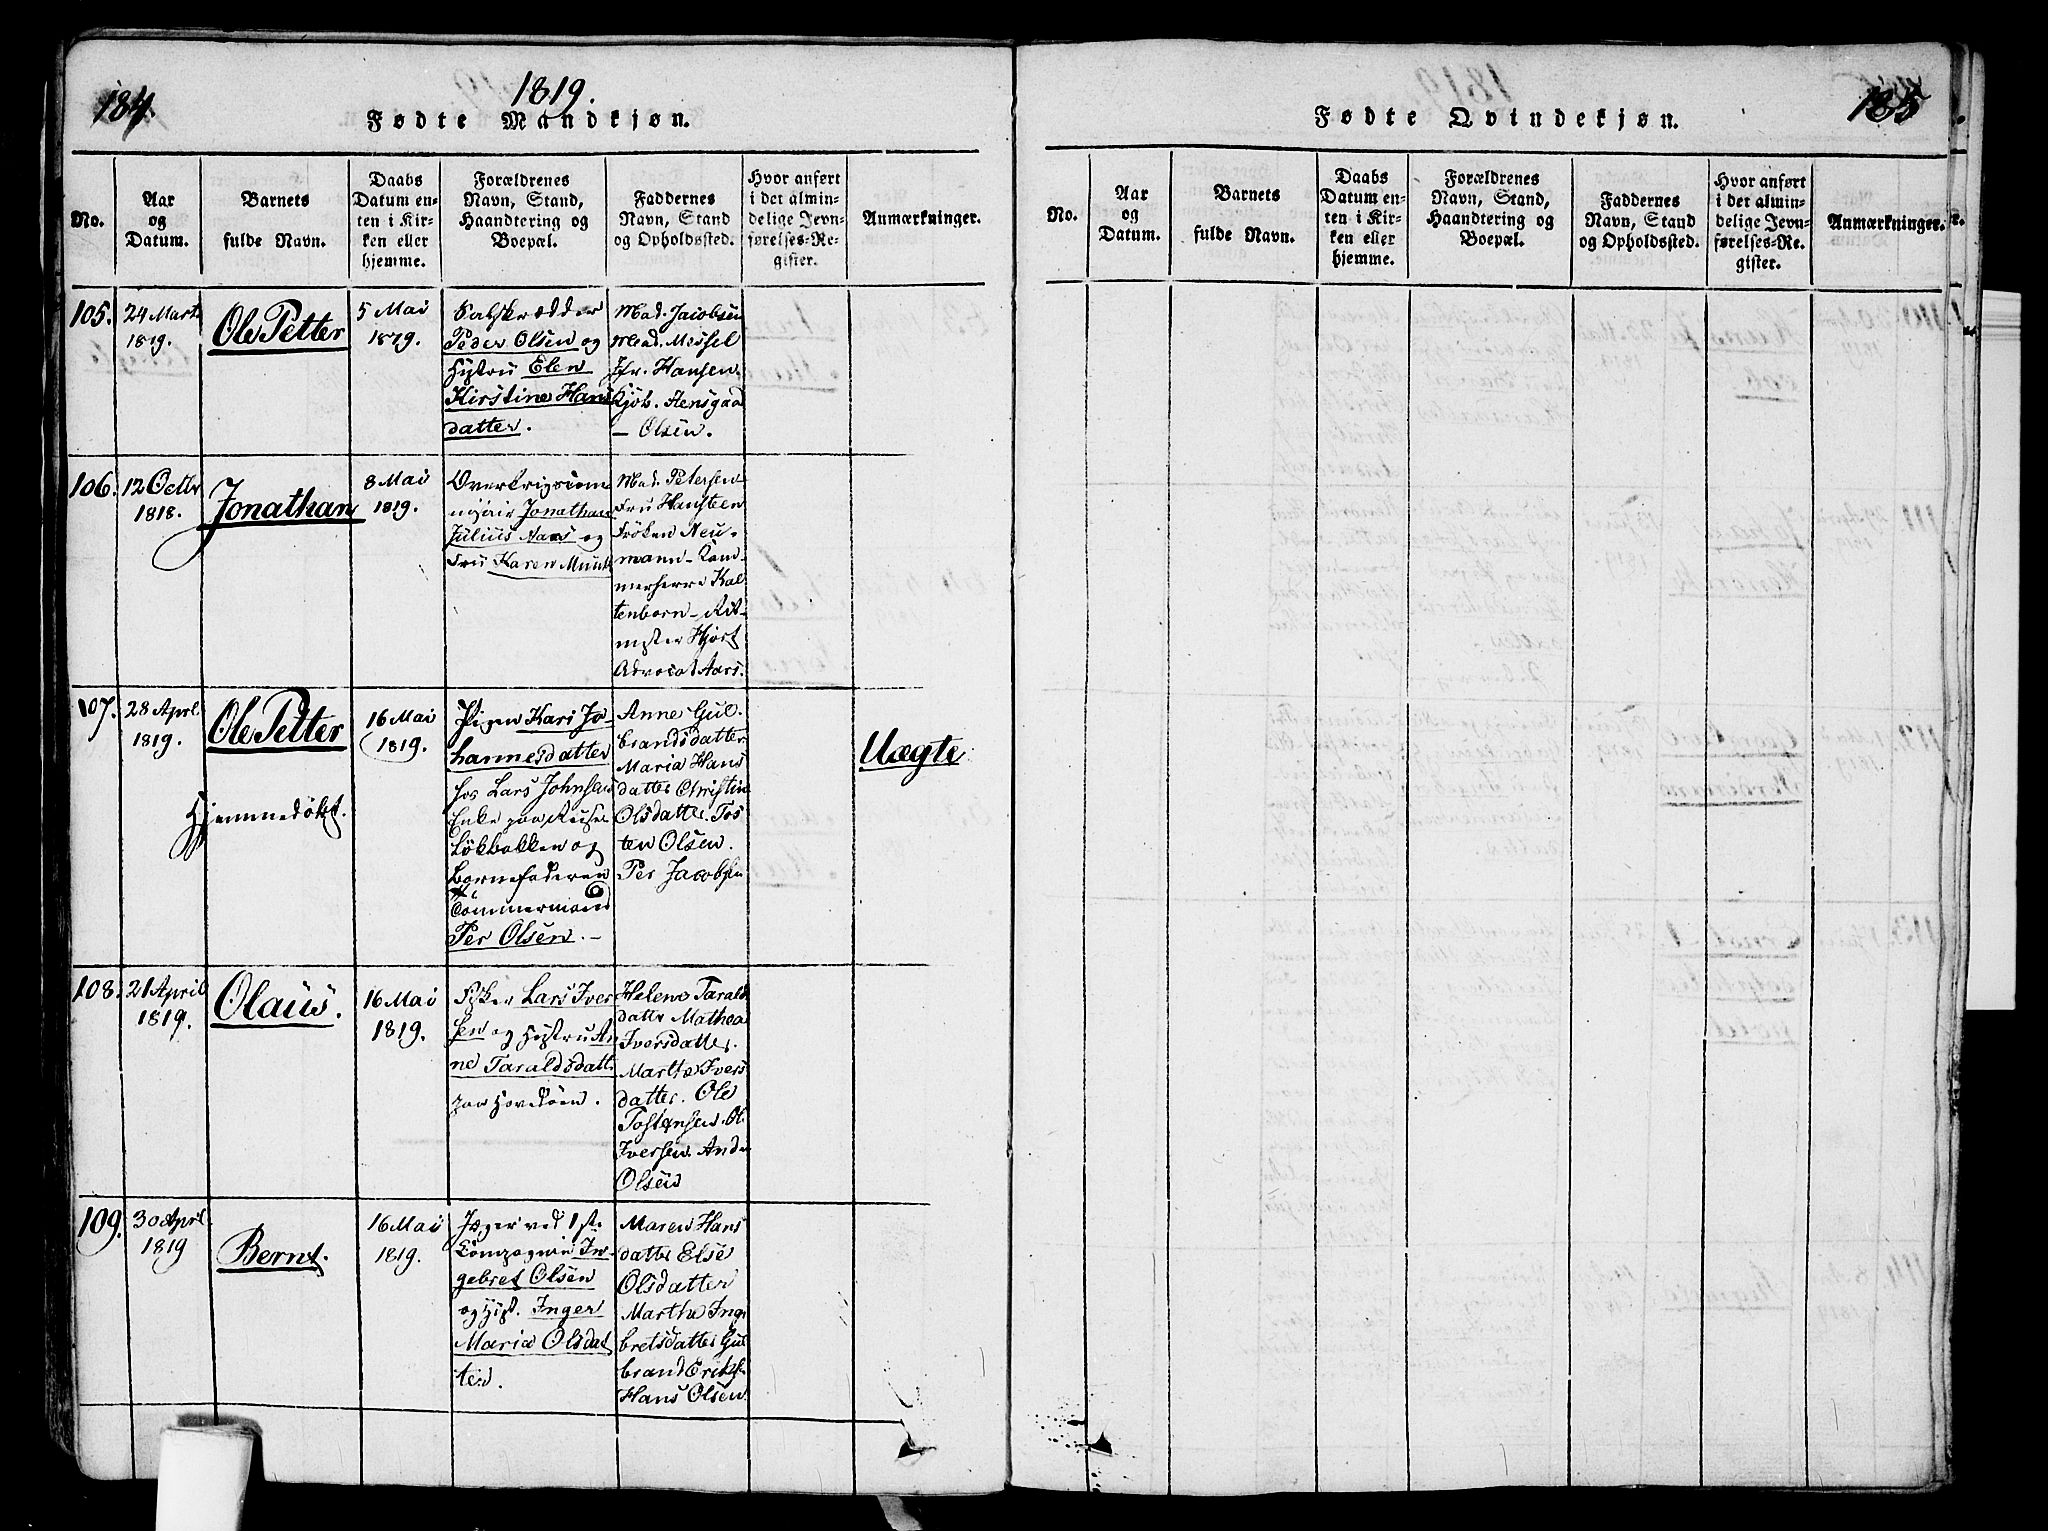 184.
1819.
Fødte Mandkjøn.
No.
Aar
og
Datum.
Barnets
fulde Navn.
Daabs
Datum en-
ten i Kir-
ken eller
hjemme.
Forældrenes
Navn, Stand,
Haandtering og
Boepæl.
Faddernes
Navn, Stand
og Opholdssted.
Hvor anført
i det almin-
delige Jevn-
førelses-Re-
gister.
Anmærkninger.
105.
24 Marts
1819.
Ole Petter
5 Mai
1819.
Peder Olsen og
Hustru Elen
Kirstine Hans
datter.
Mad. Jacobsen
Mad. Missel
Jfr. Hansen
Kjöb. Hensgaad
– Olsen.
106.
12 Octbr
1818.
Jonathan
8 Mai
1819.
Overkrigscom
misair Jonathan
Julius Aars og
Fru Karen Munk
Mad. Petersen
Fru Hansteen
Fröken Neu-
mann – Kam
merherre Kal
tenborn – Rit-
mster Hjort
Advocat Aars.
107.
28 Apri.
1819.
Ole Petter
Hjemmedöbt.
16 Mai
1819.
Pigen Kari Jo-
hannesdatter
hos Lars Johnsens
Enke paa
Lökbakken og
Barnefaderen
Tömmermand
Per Olsen. –
Anne Gul.
brandsdatter
Maria Hans
datter Christin
Olsdatter. Tos
ten Olsen.
Per Jacobsen
Uægte
108.
21 April
1819.
Olaus.
16 Mai
1819.
Fisker Lars Iver
sen og Hustru An
ne Taraldsdatt.
paa Hovedöen.
Helene Tarald
datter Mathea
Iversdatter.
Marthe Ivers
datter. Ole
Tostensen. Ol.
Iversen. Andr
Olsen
109.
30 April
1819
Bernt.
16 Mai
1819.
Jæger ved 1ste
Compagnie In-
gebret Olsen
og Hust. Inger
Maria Olsdat
ter.
Maren Hans
datter Else
Olsdatter
Marthe Ing
bretsdatter Gul
brand Eriks.
Hans Olsen
185
Fødte Qvindekjøn.
No.
Aar
og
Datum.
Barnets
fulde Navn.
Daabs
Datum en-
ten i Kir-
ken eller
hjemme.
Forældrenes
Navn, Stand,
Haandtering og
Boepæl.
Faddernes
Navn, Stand
og Opholdssted.
Hvor anført
i det almin-
delige Jevn-
førelses-Re-
gister.
Anmærkninger.